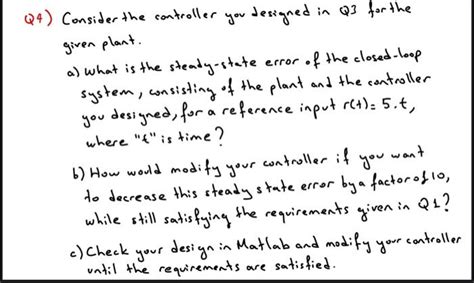 Q4) Consider the controller you designed in Q3 for the
given plant.
a) What is the steady-state error of the closed-loop
system, consisting of the plant and the controller
you designed, for a reference input r(t)= 5.t,
where "t" is time?
b) How would modify your controller if you want
to decrease this steady state error by a factor of 10,
while still satisfying the requirements given in Q1?
c) Check your design in Matlab and modify your controller
until the requirements are satisfied.